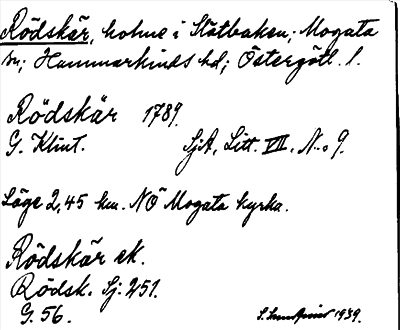 Rödskär, holme i Slätbaken; Mogata
sn; Hammarkinds hd; Östergötl. l.
Rödskär 1789.
G. Klint. SjA, Litt. VII. N:o 9.
Läge 2,45 km. NÖ Mogata kyrka.
Rödskär ek.
Rödsk. Sj. 251.
G. 56. 1939.